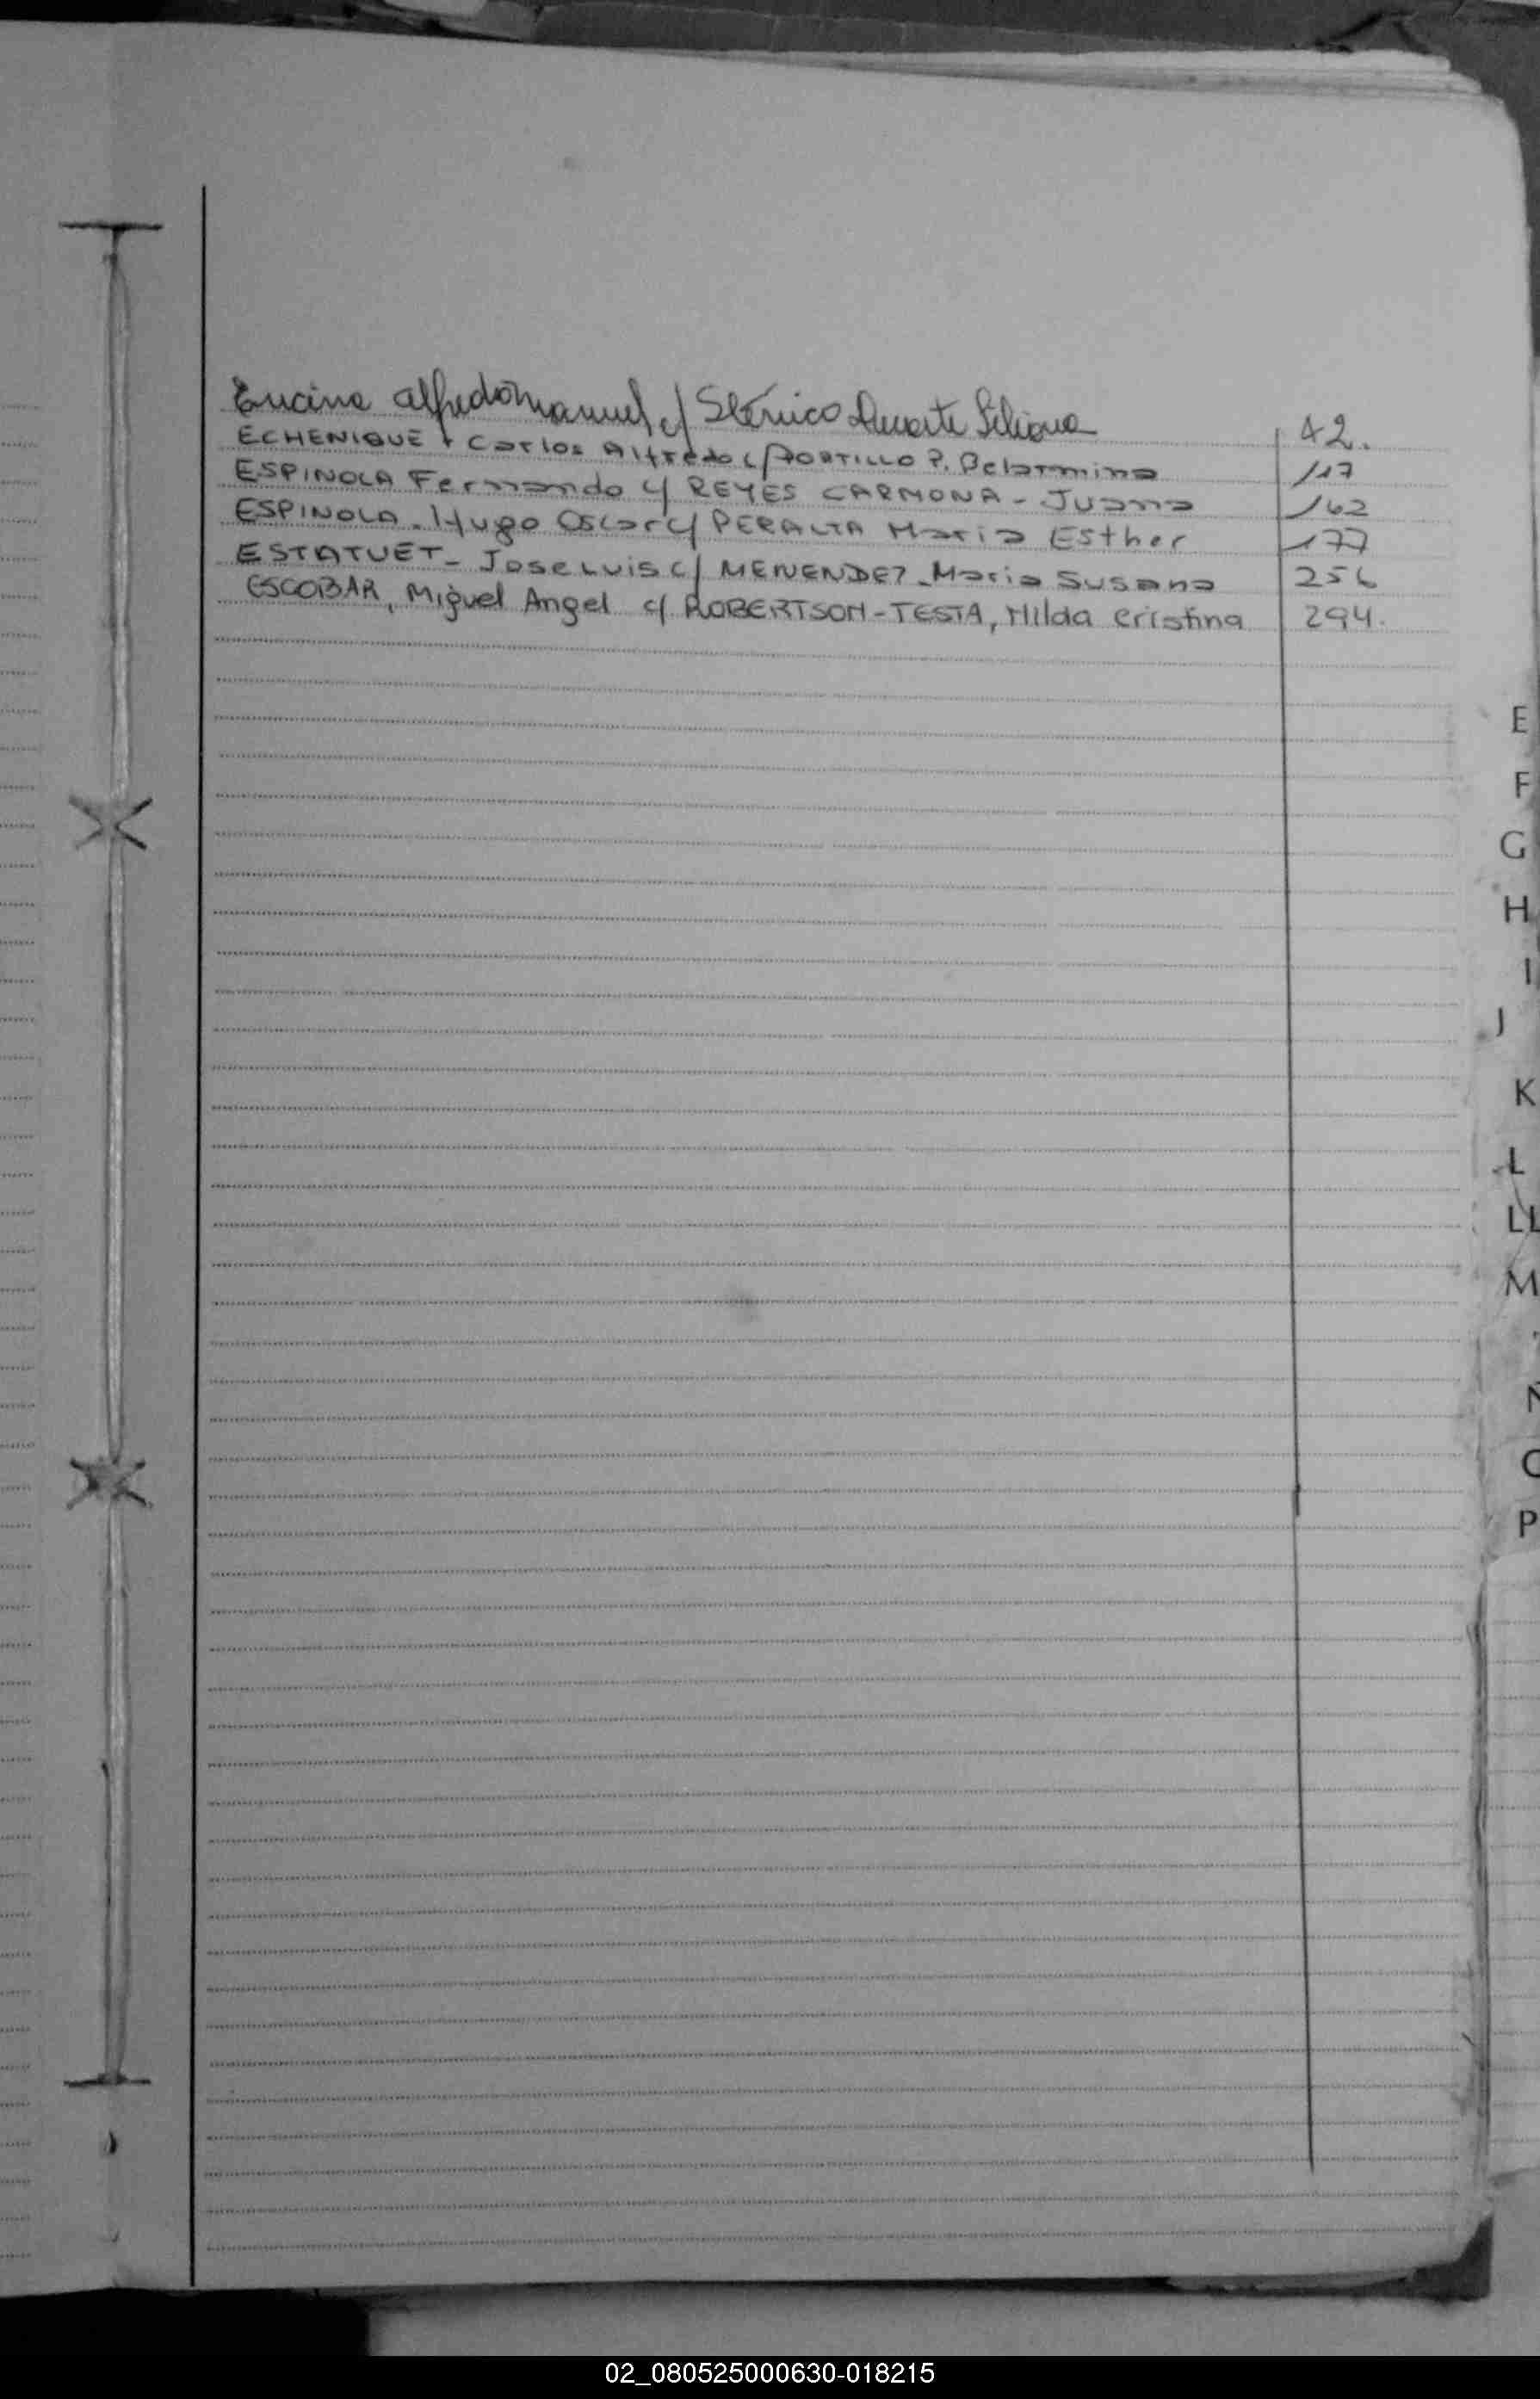 Encina Alfredo Manuel c/ Duarte Liliana 42.
ECHENIQUE Carlos Alfredo c/ PORTILLO P. Belarmina 117
ESPINOLA Fernando c/ REYES CARMONA - Juana 162
ESPINOLA - Hugo Oscar c/ PERALTA Maria Esther 177
ESTATUET - Jose Luis c/ MENENDEZ - Maria Susana 256
ESCOBAR, Miguel Angel c/ ROBERTSON-TESTA, Hilda Cristina 294.
E
F
G
H
I
J
K
L
LL
M
P
02_080525000630-018215